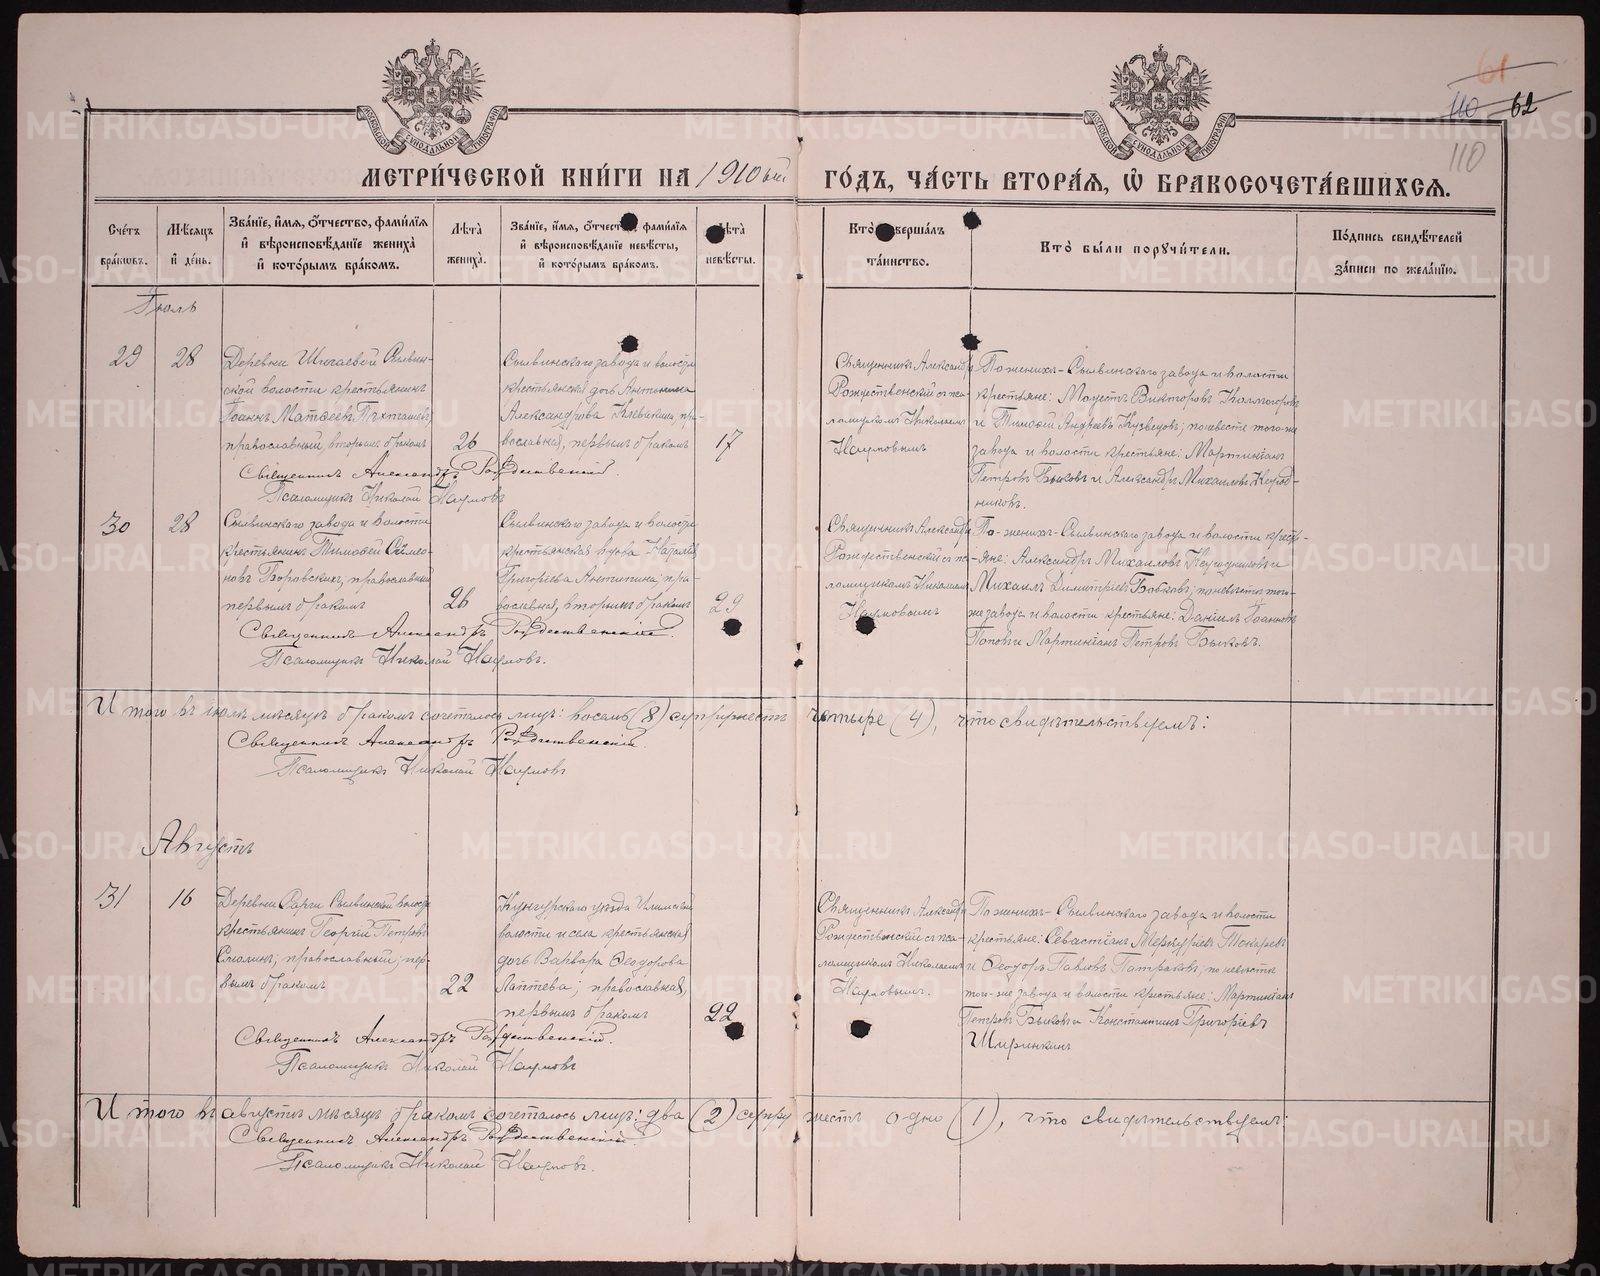 61
110 62
110
МОСКОВСКОЙ СУНОДАЛЬНОЙ ТИПОГРАФІИ
МОСКОВСКОЙ СУНОДАЛЬНОЙ ТИПОГРАФІИ
МЕТРИ́ЧЕСКОЙ КНИ́ГИ НА 1910 ый ГО́ДЪ, ЧА́СТЬ ВТОРА́Я, Ѡ БРАКОСОЧЕТА́ВШИХСЯ.
Сче́тъ бра́кѡвъ.
Мѣ́сяцъ и҆ де́нь.
Зва́нїе, и҆́мя, ѻ҆́тчество, фами́лїя
и҆ вѣроисповѣ́данїе жениха̀
и҆ кото́рымъ бра́комъ.
Лѣ́та
жениха̀.
Зва́нїе, и҆́мя, ѻ҆́тчество, фами́лїя
и҆ вѣроисповѣ́данїе невѣ́сты,
и҆ кото́рымъ бра́комъ.
Лѣ́та
невѣ́сты.
Кто̀ соверша́лъ
та́инство.
Кто̀ бы́ли порꙋчи́тели.
По́дпись свидѣ́телей
за́писи по жела́нїю.
Іюль
29
28
Деревни Шигаевой Сылвин-
ской волости крестьянинъ
Іоаннъ Матвеевъ
православный, вторымъ бракомъ
26
Сылвинскаго завода и волости
крестьянская дочь Антонина
Александрова
православная, первымъ бракомъ
17
Священникъ Александръ
Рождественский съ пса-
ломщикомъ Николаемъ
Наумовымъ
По женихѣ - Сылвинскаго завода и волости
крестьяне: Модестъ Викторовъ Колмогоровъ
и Тимофей Андреевъ Кузнецовъ; по невесте того же
завода и волости крестьяне: Мартиніанъ
Петровъ Быковъ и Александръ Михаиловъ
Священникъ Александръ Рождественский.
Псаломщикъ Николай Наумовъ
30
28
Сылвинскаго завода и волости
крестьянинъ Тимофей Симео-
новъ Боровскихъ, православный
первымъ бракомъ
26
Сылвинскаго завода и волости
крестьянская вдова Наталія
Григорьева Антипина, пра-
вославная, вторымъ бракомъ
29
Священникъ Александръ
Рождественский съ пса-
ломщикомъ Николаемъ
Наумовымъ
По женихѣ - Сылвинскаго завода и волости кресть-
яне: Александръ Михаиловъ и
Михаилъ Димитріевъ Бобковъ; по невѣстѣ того-
же завода и волости крестьяне: Даніилъ Іоанновъ
Поповъ и Мартиніанъ Петровъ Быковъ.
Священникъ Александръ Рождественский.
Псаломщикъ Николай Наумовъ.
Итого въ іюлѣ мѣсяцѣ бракомъ сочеталось лицъ: восемь (8) супружествъ четыре (4), что свидѣтельствуемъ:
Священникъ Александръ Рождественский.
Псаломщикъ Николай Наумовъ
Августъ
31
16
Деревни Сарги Сылвинской волости
крестьянинъ Георгій Петровъ
Смолинъ, православный, пер-
вымъ бракомъ
22
Кунгурскаго уѣзда Илимской
волости и села крестьянская
дочь Варвара Ѳеодорова
Лаптева; православная,
первымъ бракомъ
22
Священникъ Александръ
Рождественский съ пса-
ломщикомъ Николаемъ
Наумовымъ.
По женихѣ - Сылвинскаго завода и волости
крестьяне: Севастіанъ Меркуріевъ Токаревъ
и Ѳеодоръ Павловъ Патраковъ; по невѣстѣ
того-же завода и волости крестьяне: Мартиніанъ
Петровъ Быковъ и Константинъ Григоріевъ
Ширинкинъ
Священникъ Александръ Рождественский.
Псаломщикъ Николай Наумовъ
Итого въ августѣ мѣсяцѣ бракомъ сочеталось лицъ: два (2) супружествъ одно (1), что свидѣтельствуемъ:
Священникъ Александръ Рождественский.
Псаломщикъ Николай Наумовъ.
METRIKI.GASO-URAL.RU